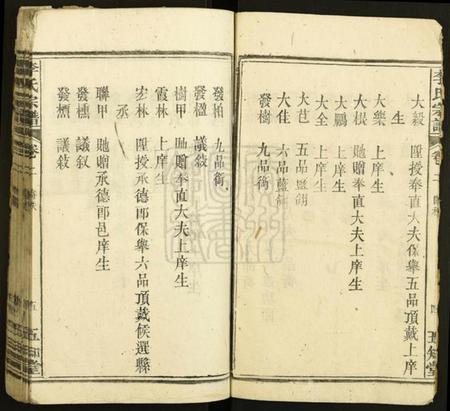 李氏宗譜
卷
五知堂
大毅 貤授奉直大夫保舉五品頂戴上庠
生
大樂 上庠生
大椇 貤贈奉直大夫上庠生
大鵬 上庠生
大全 上庠生
大芑 五品藍翎
大佳 六品藍翎
發樹 九品銜
發柏 九品銜
發楹 議敘
樹甲 貤贈奉直大夫上庠生
霞林 上庠生
宏林 貤授承德郎保舉六品頂戴候選縣
丞
聯甲 貤贈承德郎邑庠生
發櫄 議敘
發槱 議敘
李氏宗譜
卷
五
五知堂